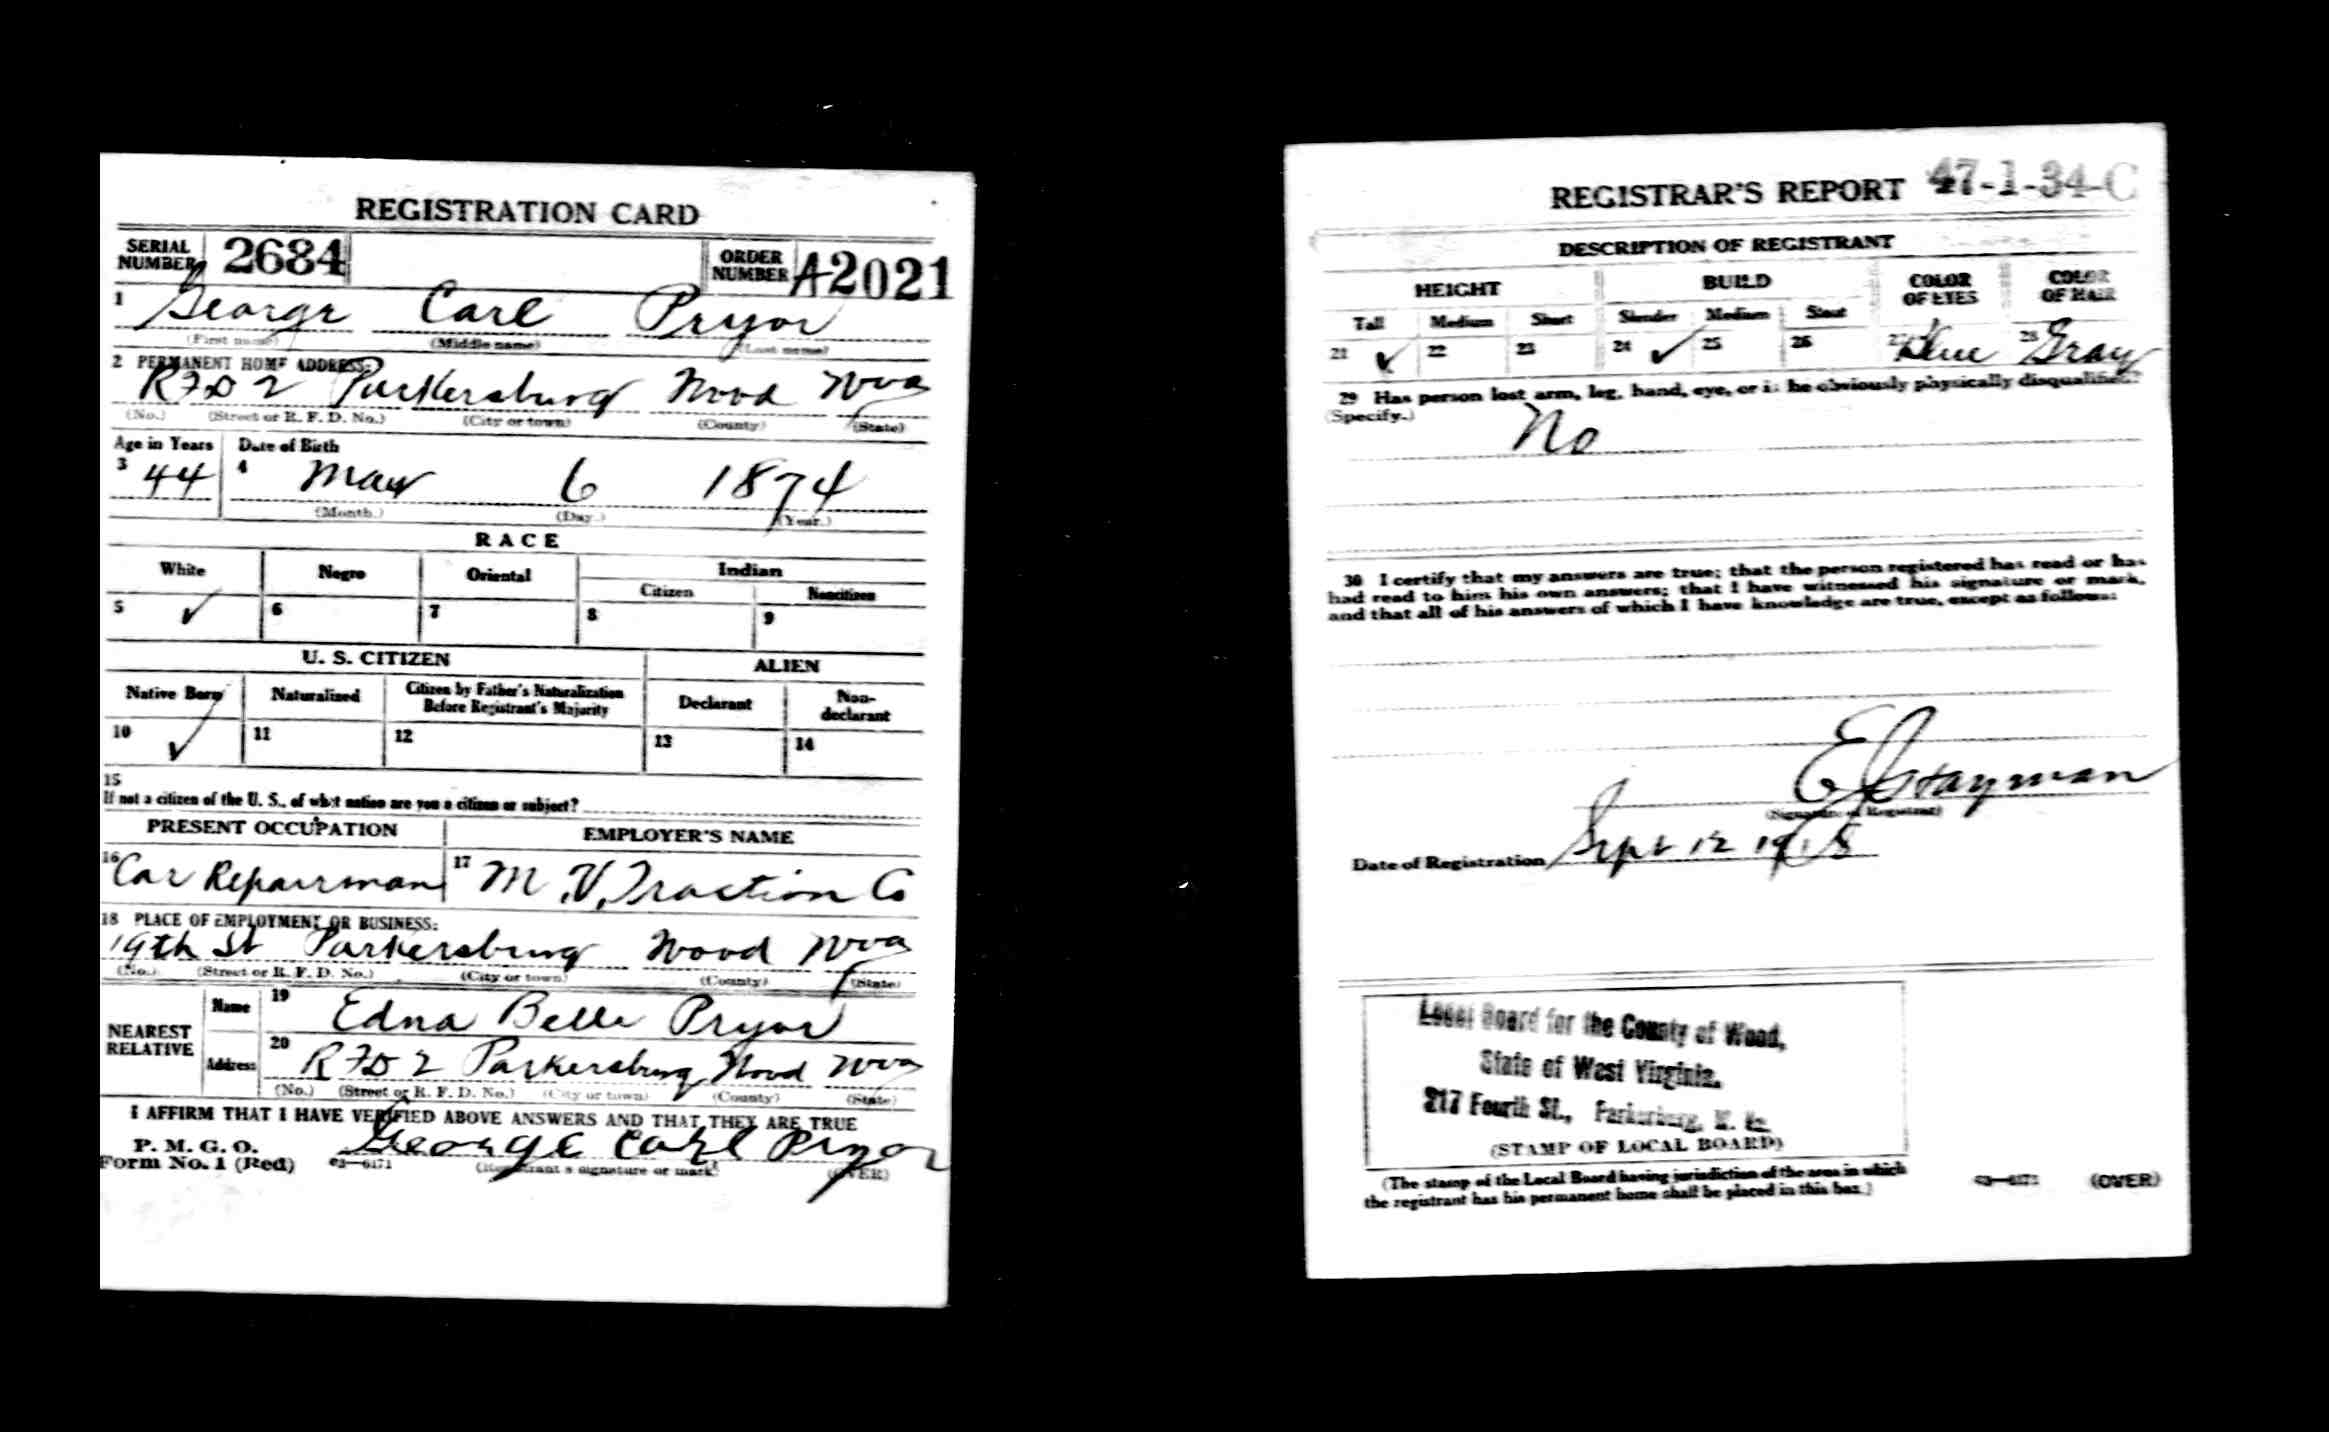 REGISTRATION CARD
SERIAL NUMBER 2684 ORDER NUMBER A2021
1 George Carl Pryor
(First name) (Middle name) (Last name)
2 PERMANENT HOME ADDRESS:
RFD 2 Parkersburg Wood Wva
(No.) (Street or R. F. D. No.) (City or town) (County) (State)
Age in Years Date of Birth
3 44 4 May 6 1874
(Month.) (Day.) (Year.)
RACE
White Negro Oriental Indian
Citizen Noncitizen
5 ✓ 6 7 8 9
U. S. CITIZEN ALIEN
Native Born Naturalized Citizen by Father's Naturalization Before Registrant's Majority Declarant Non-declarant
10 ✓ 11 12 13 14
15
If not a citizen of the U. S., of what nation are you a citizen or subject?
PRESENT OCCUPATION EMPLOYER'S NAME
16 Car Repairman 17 M.V. Traction Co
18 PLACE OF EMPLOYMENT OR BUSINESS:
19th St Parkersburg Wood Wva
(No.) (Street or R. F. D. No.) (City or town) (County) (State)
NEAREST RELATIVE Name 19 Edna Belle Pryor
Address 20 RFD 2 Parkersburg Wood Wva
(No.) (Street or R. F. D. No.) (City or town) (County) (State)
I AFFIRM THAT I HAVE VERIFIED ABOVE ANSWERS AND THAT THEY ARE TRUE
P. M. G. O.
Form No. 1 (Red) 03—6171 George Carl Pryor
(Registrant's signature or mark) (OVER)
REGISTRAR'S REPORT 47-1-34-C
DESCRIPTION OF REGISTRANT
HEIGHT BUILD COLOR OF EYES COLOR OF HAIR
Tall Medium Short Slender Medium Stout
21 ✓ 22 23 24 ✓ 25 26 27 Blue 28 Gray
29 Has person lost arm, leg, hand, eye, or is he obviously physically disqualified?
(Specify.) No
30 I certify that my answers are true; that the person registered has read or has
had read to him his own answers; that I have witnessed his signature or mark,
and that all of his answers of which I have knowledge are true, except as follows:
(Signature of Registrant)
Date of Registration Sept 12 1918
Local Board for the County of Wood,
State of West Virginia.
217 Fourth St., Parkersburg, W. Va.
(STAMP OF LOCAL BOARD)
(The stamp of the Local Board having jurisdiction of the area in which
the registrant has his permanent home shall be placed in this box.)
03—6171 (OVER)